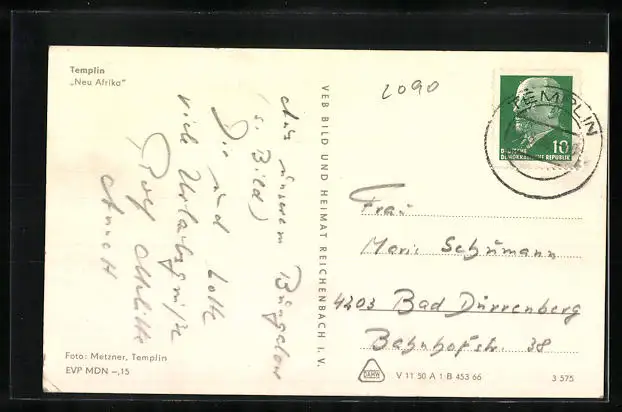 Templin
„Neu Afrika“
2090
TEMPLIN
10
DEUTSCHE
DEMOKRATISCHE REPUBLIK
Aus unserem Bungalow
(s. Bild)
Dir und Lotte
viele Urlaubsgrüße
Rolf
Annett
VEB BILD UND HEIMAT REICHENBACH I. V.
Frau
Marie Schumann
4203 Bad Dürrenberg
Bahnhofstr. 38
Foto: Metzner, Templin
EVP MDN –,15
V 11 50 A 1 B 453 66
3 575